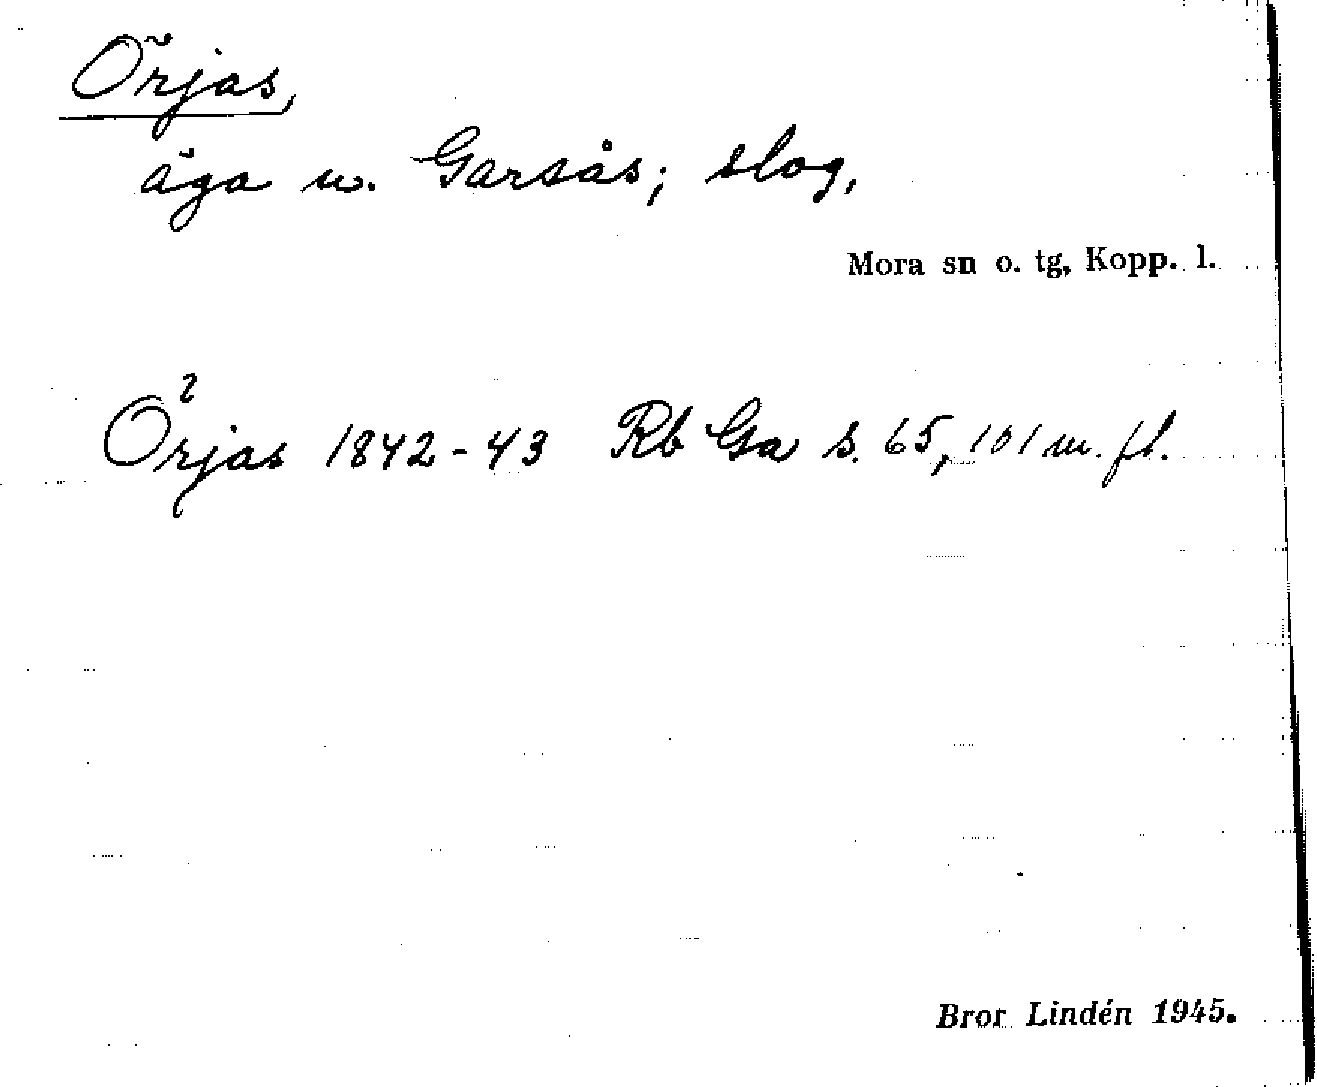 Örjas,
äga u. Garsås; slog,
Mora sn o. tg, Kopp. l.
Örjas 1842-43 Rb Ga s. 65, 101 m. fl.
Bror Lindén 1945.